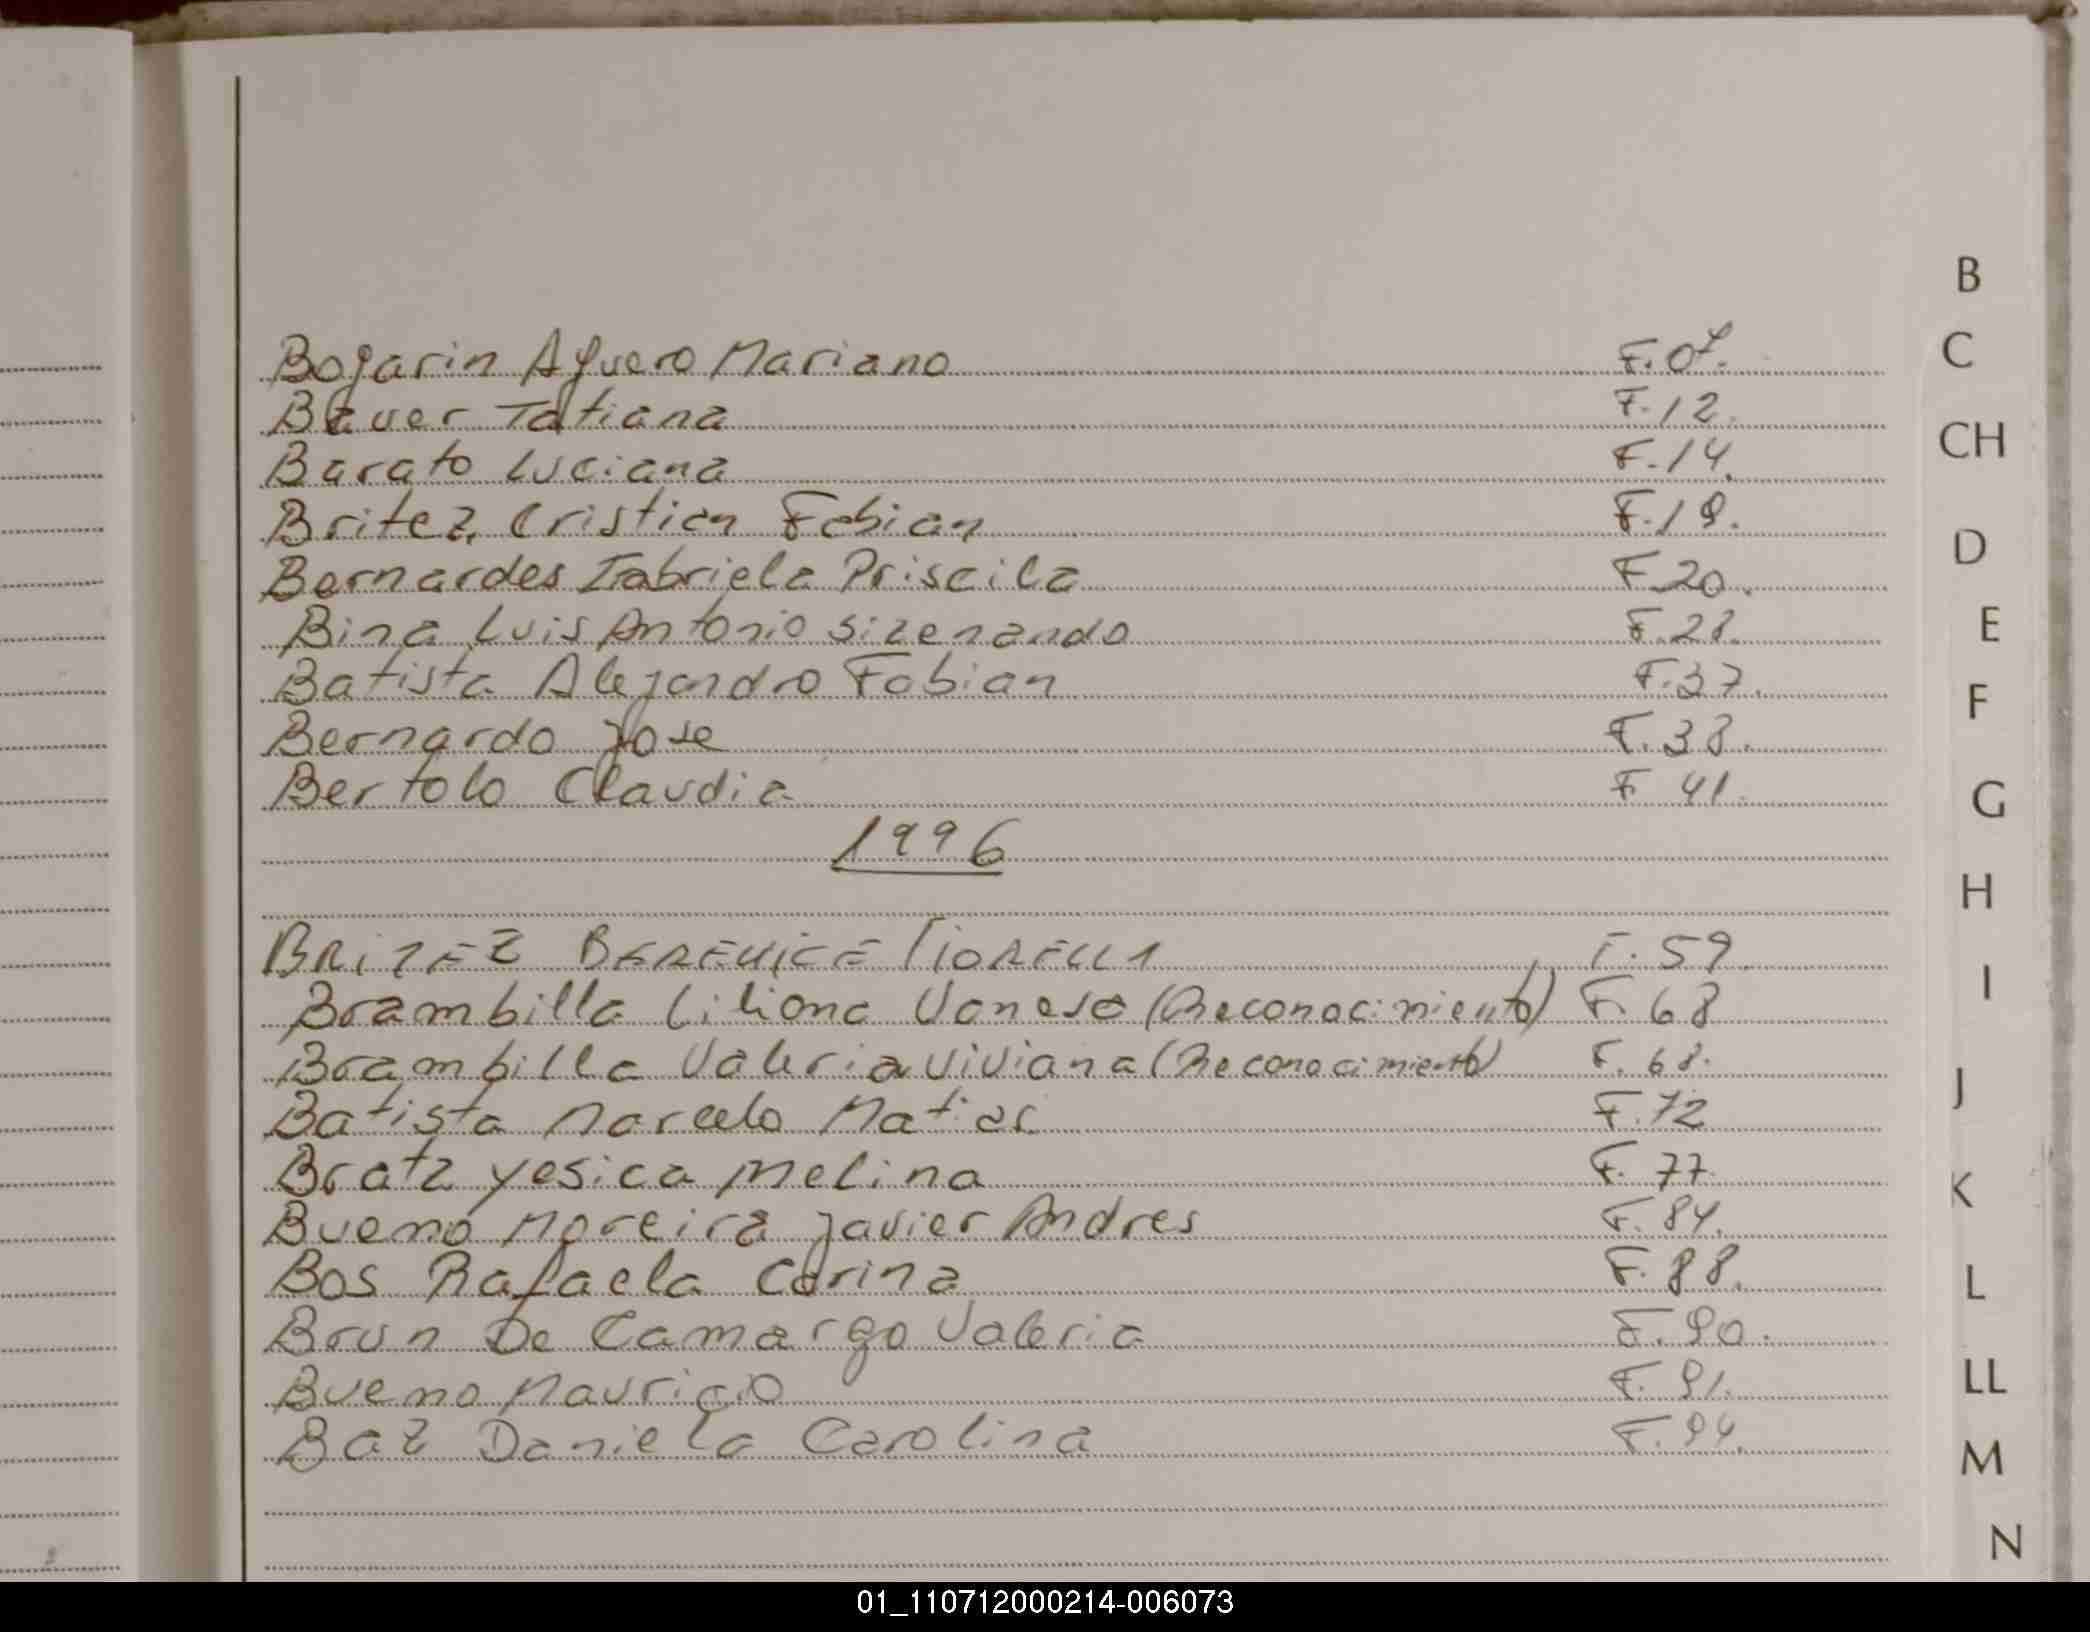 Bogarin Aguero Mariano F.07.
Bauer Tatiana F.12.
Barato Luciana F.14.
Britez, Cristian Fabian F.19.
Bernardes Gabriela Priscila F 20.
Bina Luis Antonio Sizenando F.28.
Batista Alejandro Fabian F.37.
Bernardo Jose F.38.
Bertolo Claudia F 41.
1996
BRITEZ BERENICE FIORELLA F. 59.
Brambilla Liliana Vanesa (Reconocimiento) F. 68
Brambilla Valeria Viviana (Reconocimiento) F. 68.
Batista Marcelo Matias F.72
Bratz Yesica Melina F. 77.
Bueno Moreira Javier Andres F. 84.
Bos Rafaela Corina F. 88.
Brun De Camargo Valeria F. 90.
Bueno Mauricio F. 91.
Baz Daniela Carolina F. 94.
B
C
CH
D
E
F
G
H
I
J
K
L
LL
M
N
01_110712000214-006073